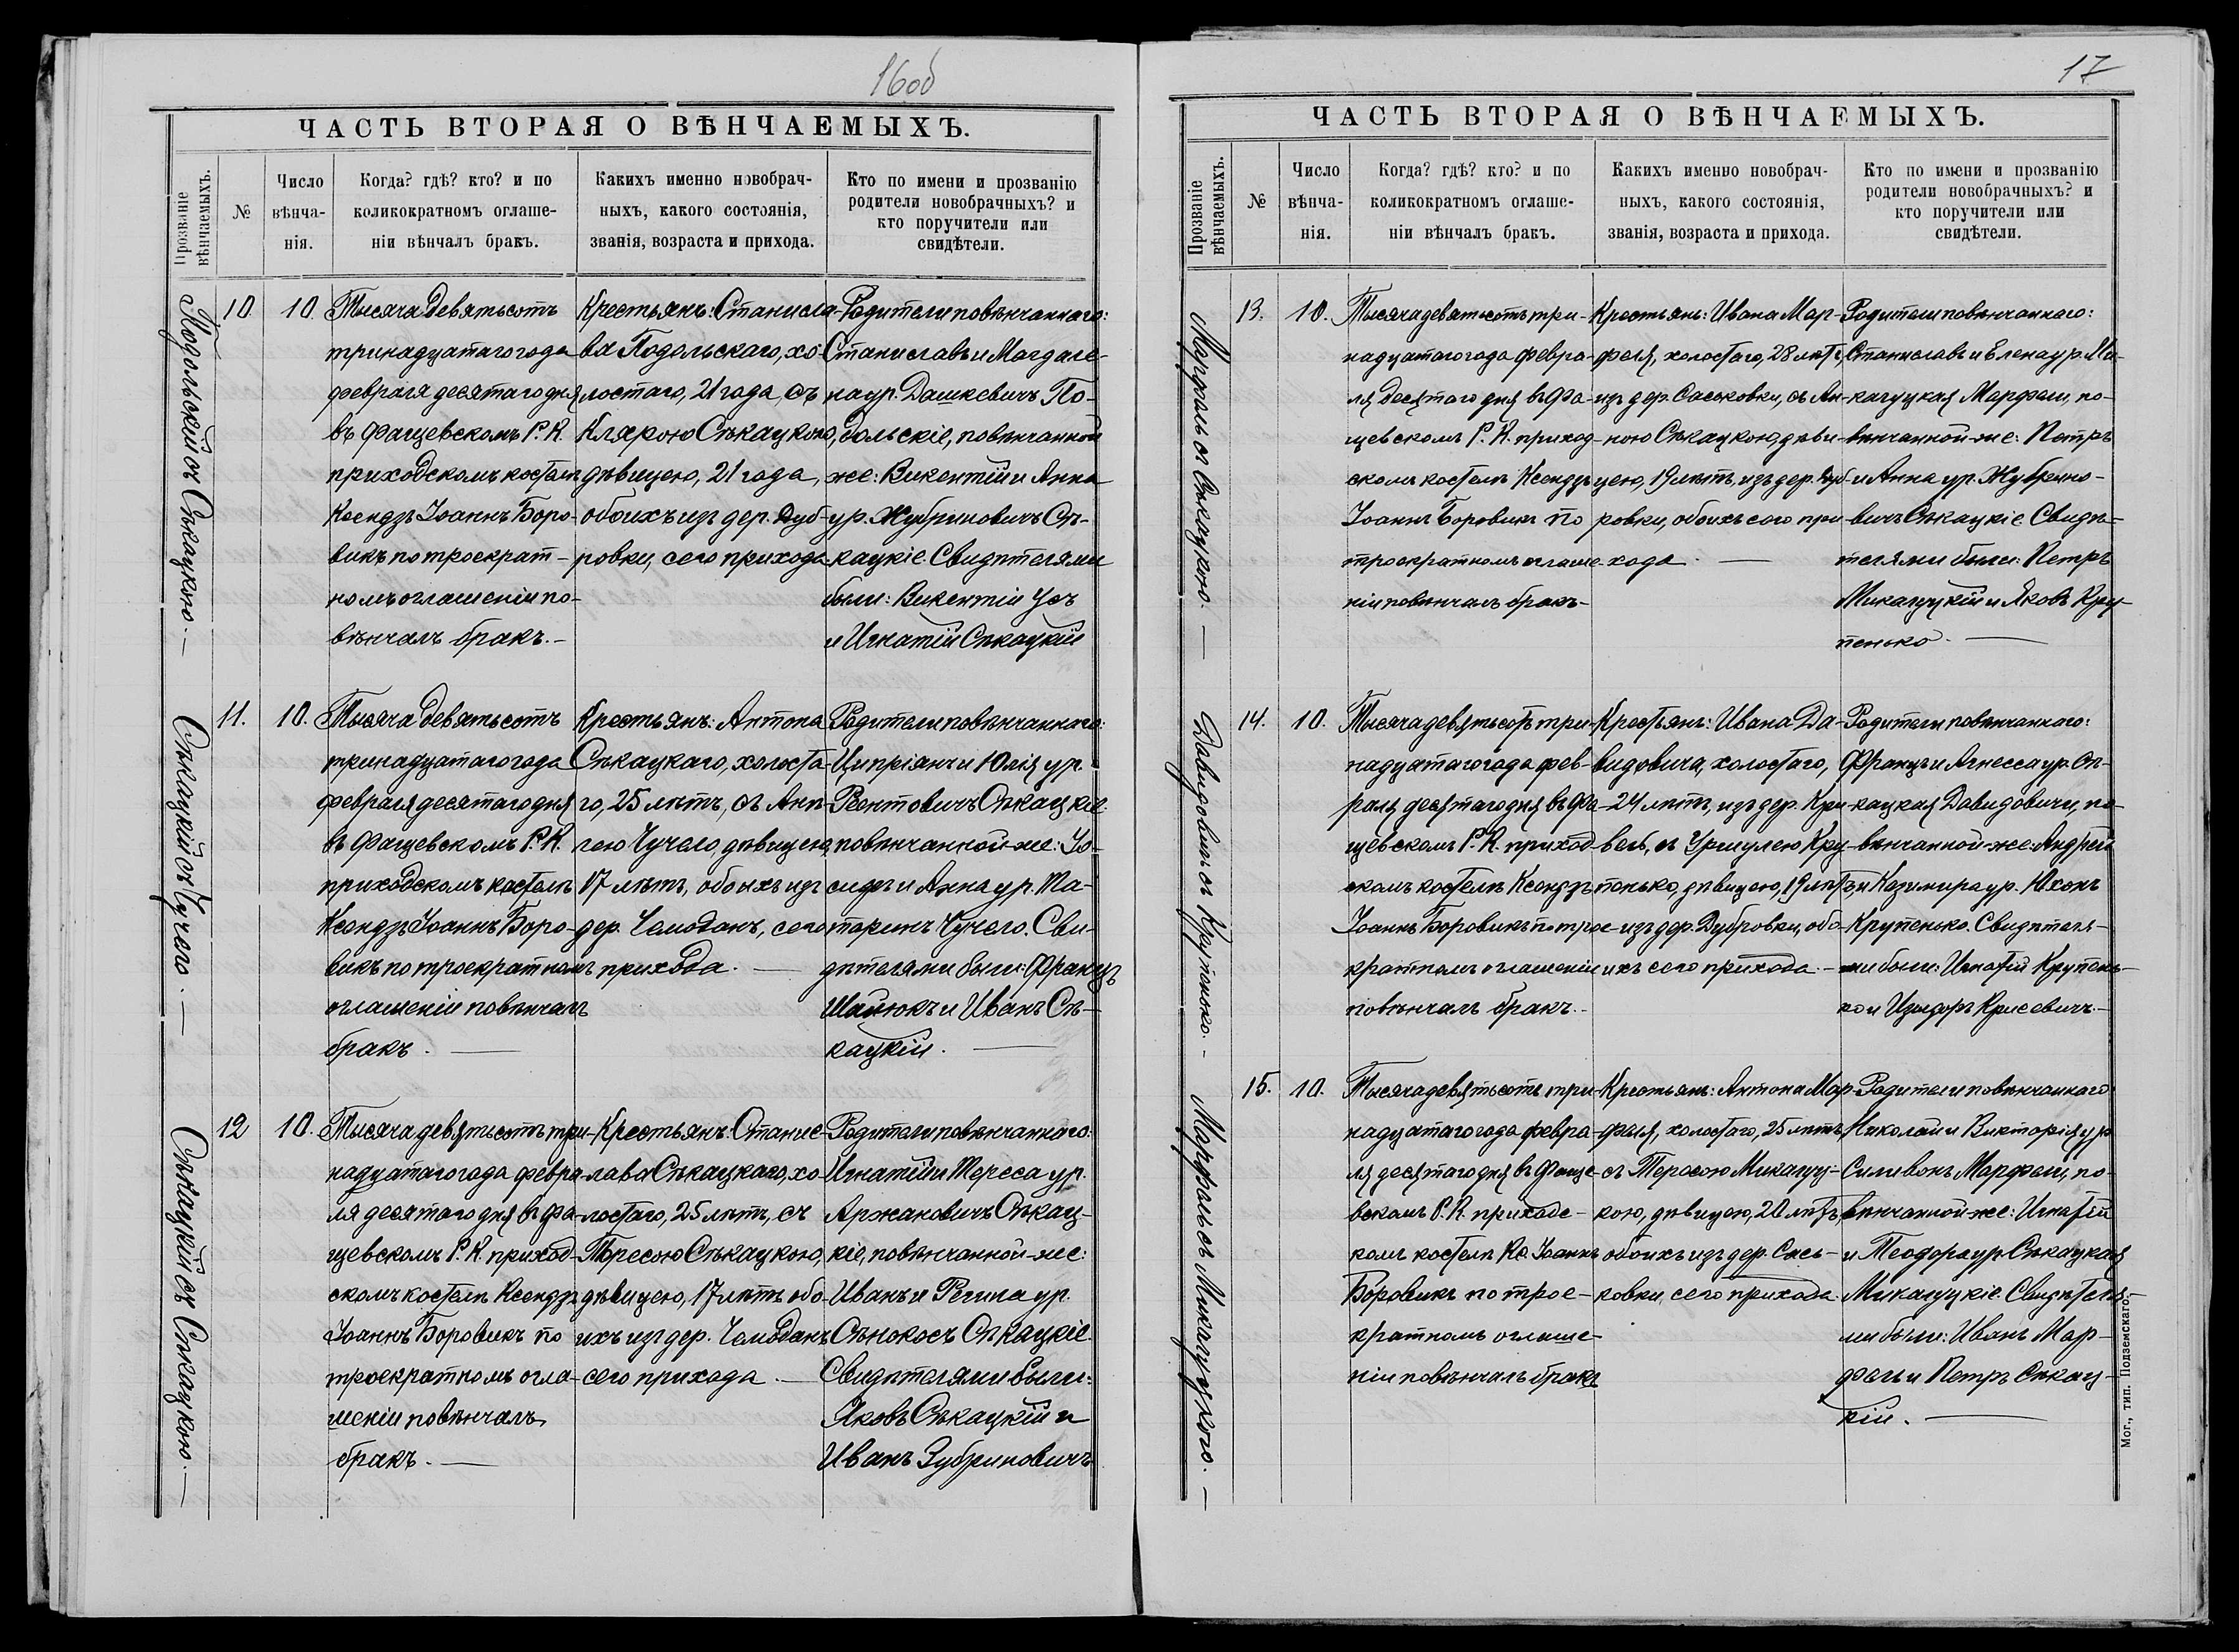 16об
ЧАСТЬ ВТОРАЯ О ВѢНЧАЕМЫХЪ.
Прозваніе
вѣнчаемыхъ.
№
Число
вѣнча-
нія.
Когда? гдѣ? кто? и по
коликократномъ оглаше-
ніи вѣнчалъ бракъ.
Какихъ именно новобрач-
ныхъ, какого состоянія,
званія, возраста и прихода.
Кто по имени и прозванію
родители новобрачныхъ? и
кто поручители или
свидѣтели.
Подольскій съ Сѣкацкою. —
10
10.
Тысяча девятьсотъ
тринадцатаго года
февраля десятаго дня
въ Фащевскомъ Р. К.
приходскомъ костелѣ
Ксендзъ Іоаннъ Боро-
викъ по троекрат-
номъ оглашеніи по-
вѣнчалъ бракъ. —
Крестьянъ: Станисла-
ва Подольскаго, хо-
лостаго, 21 года, съ
Клярою Сѣкацкою,
дѣвицею, 21 года,
обоихъ изъ дер. Дуб-
ровки, сего прихода
Родители повѣнчаннаго:
Станиславъ и Магдале-
на ур. Дашкевичъ По-
дольскіе, повѣнчанной
же: Викентій и Анна
ур. Жубриновичъ Сѣ-
кацкіе. Свидѣтелями
были: Викентій Усъ
и Игнатій Сѣкацкій
Сѣкацкій съ Чучего. —
11.
10.
Тысяча девятьсотъ
тринадцатаго года
февраля десятаго дня
въ Фащевскомъ Р. К.
приходскомъ костелѣ
Ксендзъ Іоаннъ Боро-
викъ по троекратномъ
оглашеніи повѣнчалъ
бракъ. —
Крестьянъ: Антона
Сѣкацкаго, холоста-
го, 25 лѣтъ, съ Анѣ-
лею Чучело, дѣвицею,
17 лѣтъ, обоихъ изъ
дер. Чемоданъ, сего
прихода. —
Родители повѣнчаннаго:
Ципріянъ и Юлія ур.
Рентовичъ Сѣкацкіе
повѣнчанной-же: Іо-
сифъ и Анна ур. Па-
таринъ Чучело. Сви-
дѣтелями были: Францъ
Шайюкъ и Иванъ Сѣ-
кацкіи. —
Сѣкацкій съ Сѣкацкою. —
12
10.
Тысяча девятьсотъ три-
надцатаго года февра-
ля десятаго дня въ Фа-
щевскомъ Р. К. приход-
скомъ костелѣ Ксендзъ
Іоаннъ Боровикъ по
троекратномъ огла-
шеніи повѣнчалъ
бракъ. —
Крестьянъ: Станис-
лава Сѣкацкаго, хо-
лостаго, 25 лѣтъ, съ
Тересою Сѣкацкою,
дѣвицею, 17 лѣтъ, обо-
ихъ изъ дер. Чемоданъ
сего прихода. —
Родители повѣнчаннаго:
Игнатій и Тереса ур.
Аржановичъ Сѣкац-
кіе, повѣнчанной-же:
Иванъ и Регина ур.
Сѣнокосъ Сѣкацкіе.
Свидѣтелями были:
Яковъ Сѣкацкій и
Иванъ Зубриновичъ
17
ЧАСТЬ ВТОРАЯ О ВѢНЧАЕМЫХЪ.
Прозваніе
вѣнчаемыхъ.
№
Число
вѣнча-
нія.
Когда? гдѣ? кто? и по
коликократномъ оглаше-
ніи вѣнчалъ бракъ.
Какихъ именно новобрач-
ныхъ, какого состоянія,
званія, возраста и прихода.
Кто по имени и прозванію
родители новобрачныхъ? и
кто поручители или
свидѣтели.
Марфель съ Сѣкацкою. —
13.
10.
Тысяча девятьсотъ три-
надцатаго года февра-
ля десятаго дня въ Фа-
щевскомъ Р. К. приход-
скомъ костелѣ Ксендзъ
Іоаннъ Боровикъ по
троекратномъ оглаше-
ніи повѣнчалъ бракъ-
Крестьянъ: Ивана Мар-
феля, холостаго, 28 лѣтъ,
изъ дер. Саськовки, съ Ан-
ною Сѣкацкою, дѣви-
цею, 19 лѣтъ, изъ дер. Дуб-
ровки, обоихъ сего при-
хода. —
Родители повѣнчаннаго:
Станиславъ и Елена ур. Ми-
калуцкая Марфели, по-
вѣнчанной-же: Петръ
и Анна ур. Жубрино-
вичъ Сѣкацкіе. Свидѣ-
телями были: Петръ
Микалуцкій и Яковъ Кру-
пенько. —
Давидовичъ съ Крупенько. —
14.
10.
Тысяча девятьсотъ три-
надцатаго года фев-
раля десятаго дня въ Фа-
щевскомъ Р. К. приход-
скомъ костелѣ Ксендзъ
Іоаннъ Боровикъ по трое-
кратномъ оглашеніи
повѣнчалъ бракъ. -
Крестьянъ: Ивана Да-
видовича, холостаго,
24 лѣтъ, изъ дер. Кри-
вель, съ Уршулею Кру-
пенько, дѣвицею, 19 лѣтъ,
изъ дер. Дубровки, обо-
ихъ сего прихода. —
Родители повѣнчаннаго:
Францъ и Агнесса ур. Сѣ-
кацкая Давидовичи, по-
вѣнчанной-же: Андрей
и Казимира ур. Юхонъ
Крупенько. Свидѣтеля-
ми были: Игнатій Крупень-
ко и Изидоръ Крисевичъ. —
Марфель съ Микалуцкою. —
15.
10.
Тысяча девятьсотъ три-
надцатаго года февра-
ля десятаго дня въ Фаще-
вскомъ Р. К. приходс-
комъ костелѣ Кс. Іоаннъ
Боровикъ по трое-
кратномъ оглаше-
ніи повѣнчалъ бракъ
Крестьянъ: Антона Мар-
феля, холостаго, 25 лѣтъ,
съ Тересою Микалуц-
кою, дѣвицею, 20 лѣтъ,
обоихъ изъ дер. Сась-
ковки, сего прихода.
Родители повѣнчаннаго
Николай и Викторія ур.
Силивонъ Марфели, по-
вѣнчанной-же: Игнатій
и Теодора ур. Сѣкацкая
Микалуцкіе. Свидѣтеля-
ми были: Иванъ Мар-
фель и Петръ Сѣкац-
кіи. —
Мог., тип. Подземскаго.